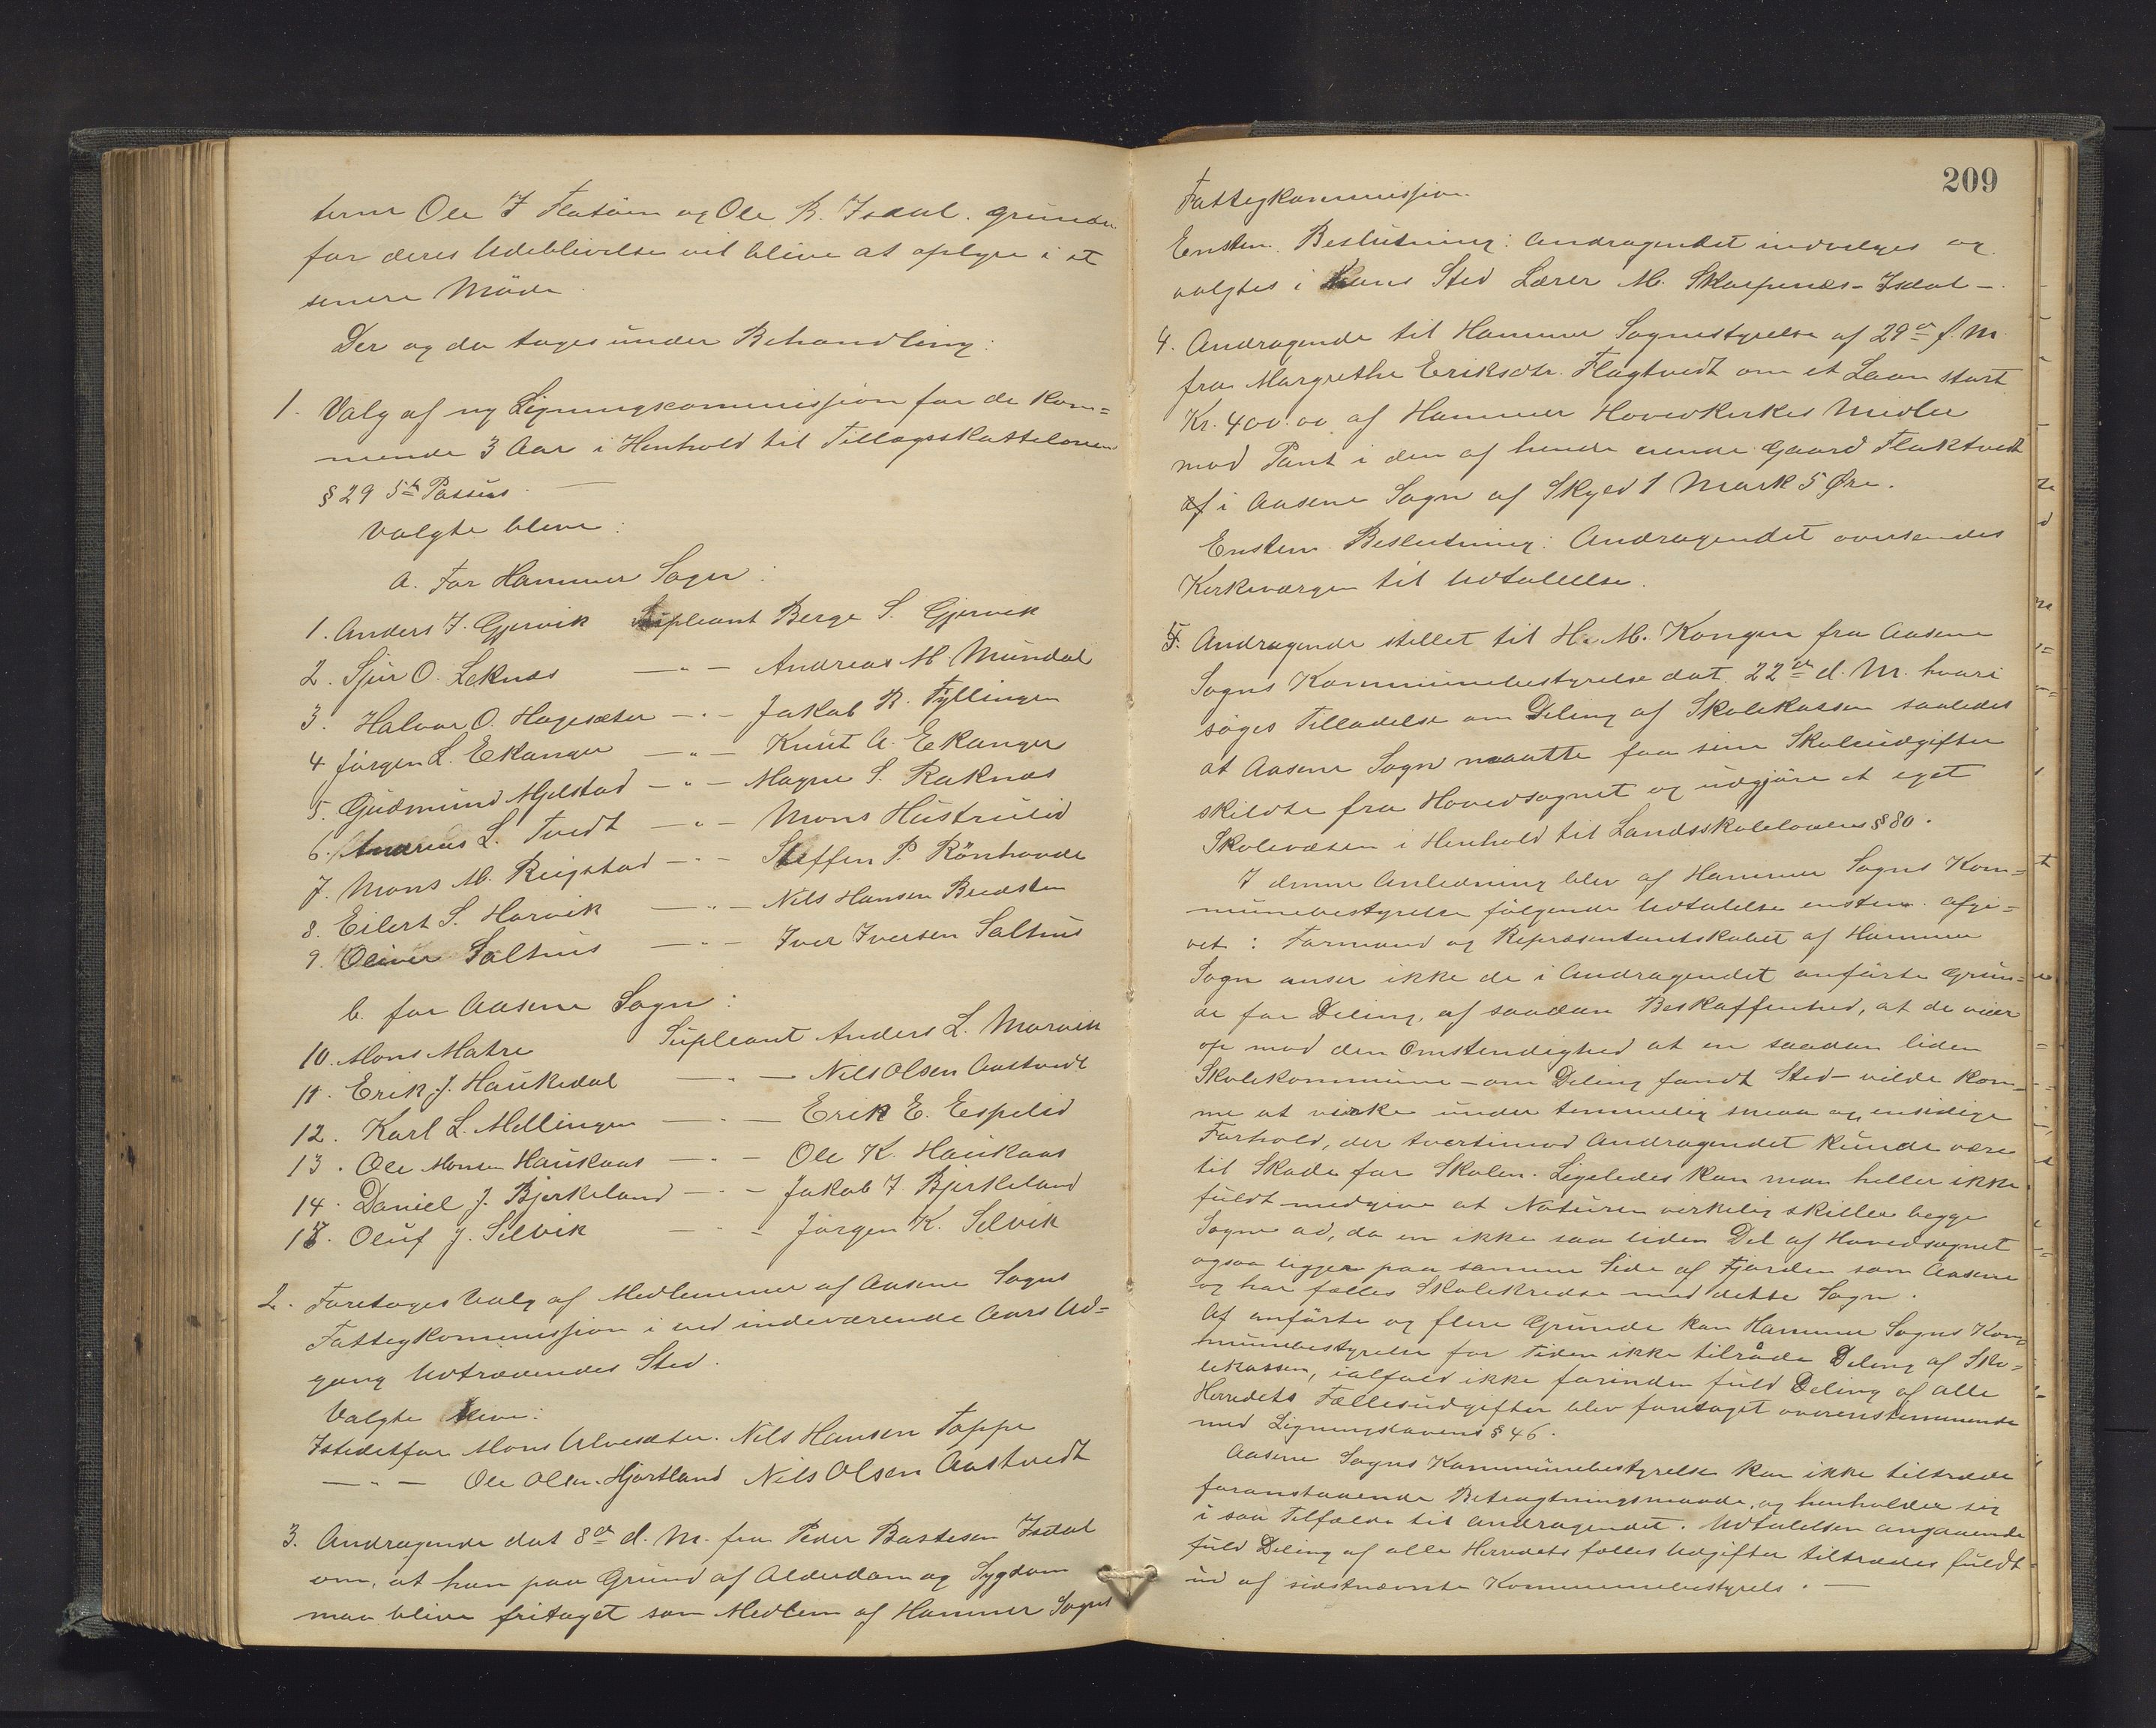 terne Ole I Flatöen og Ole B. Isdal. Grunden
for deres Udeblivelse vil blive at oplyse i et
senere Möde.
Der og da toges under Behandling:
1. Valg af ny Ligningskommission for de kom=
mende 3 Aar i Henhold til Tillægsskatteloven
§ 29 5te Passus. —
Valgte bleve:
a. For Hammer Sogn:
1. Anders J. Gjervik Supleant Berge S. Gjervik
2. Sjur O. Leknæs — " — Andreas M. Mundal
3. Halvor O. Hagesæter — " — Jakob R. Fyllingen
4 Jörgen L. Ekanger — " — Knut A. Ekanger
5. Gudmund Mjelstad — " — Magne S. Raknæs
6. Andreas L. Tvedt — " — Mons Hustrulid
7. Mons M. Rigstad — " — Steffen P. Rönhovde
8. Eilert S. Horvik — " — Nils Hansen Bredsten
9. Oliver Saltius — " — Iver Iversen Saltius
b. for Aasene Sogn:
10. Mons Matre Supleant Anders L. Morvik
11. Erik J. Haukedal — " — Nils Olsen Aastvedt
12. Karl L. Mellingen — " — Erik E. Espelid
13. Ole Monsen Haukaas — " — Ole K. Haukaas
14. Daniel J. Bjerkeland — " — Jakob J. Bjerkeland
15. Oluf J. Selvik — " — Jörgen K. Selvik
2. Foretoges Valg af Medlemmer af Aasene Sogns
Fattigkommission i ved indeværende Aars Ud=
gang Udtrædendes Sted.
Valgte bleve:
Istedetfor Mons Alvesæter. Nils Hansen Toppe
— " — Ole Olsen Hjortland Nils Olsen Aastvedt
3. Andragende dat 8de d. M. fra Peder Bastesen Isdal
om, at han paa Grund af Alderdom og Sygdom
maa blive fritaget som Medlem af Hammer Sogns
209
Fattigkommission.
Enstem. Beslutning: Andragendet indvilges og
valgtes i hans Sted Lærer M. Skarpenæs - Isdal —.
4. Andragende til Hammer Sognestyrelse af 29de f. M.
fra Margrethe Eriksdtr. Flagtvedt om et Laan stort
Kr. 400.00 af Hammer Hovedkirkes Midler
mod Pant i den af hende eiende Gaard Flaktvedt
af i Aasene Sogn af Skyld 1 Mark 5 Øre.
Enstem. Beslutning: Andragendet oversendes
Kirkeværgen til Udtalelse.
5. Andragende stillet til H. M. Kongen fra Aasene
Sogns Kommunebestyrelse dat. 22de d. M. hvori
söges Tilladelse om Deling af Skolekassen saaledes
at Aasene Sogn maatte faa sine Skoleudgifter
skildte fra Hovedsognet og udgjöre et eget
Skolevæsen i Henhold til Landsskoleloven § 80.
I denne Anledning blev af Hammer Sogns Kom=
munebestyrelse fölgende Udtalelse enstem. afgi=
vet: Formand og Repræsentantskabet af Hammer
Sogn anser ikke de i Andragendet anförte Grun=
de for Deling, af saadan Beskaffenhed, at de veier
op mod den Omstendighed at en saadan liden
Skolekommune - om Deling fandt Sted - vilde kom=
me at virke under temmelig smaa og ensidige
Forhold, der tvertimod Andragendet kunde være
til Skade for Skolen. Ligeledes kan man heller ikke
fuldt medgive at Naturen virkelig skiller begge
Sogne ad, da en ikke saa liden Del af Hovedsognet
ogsaa ligger paa samme Side af Fjorden som Aasene
og har fælles Skolekredse med dette Sogn.
Af anförte og flere Grunde kan Hammer Sogns Kom=
munebestyrelse for Tiden ikke tilråde Deling af Sko=
lekassen, ialfald ikke forinden fuld Deling af alle
Herredets Fællesudgifter blev foretaget overenstemmende
med Ligningslovens § 46.
Aasene Sogns Kommunebestyrelse kan ikke tiltræde
foranstaaende Betragtningsmaade, og henholder sig
i saa Tilfælde til Andragendet. Udtalelsen angaaende
fuld Deling af alle Herredets fælles Udgifter tiltrædes fuldt
ud af sidstnævnte Kommunebestyrels. —